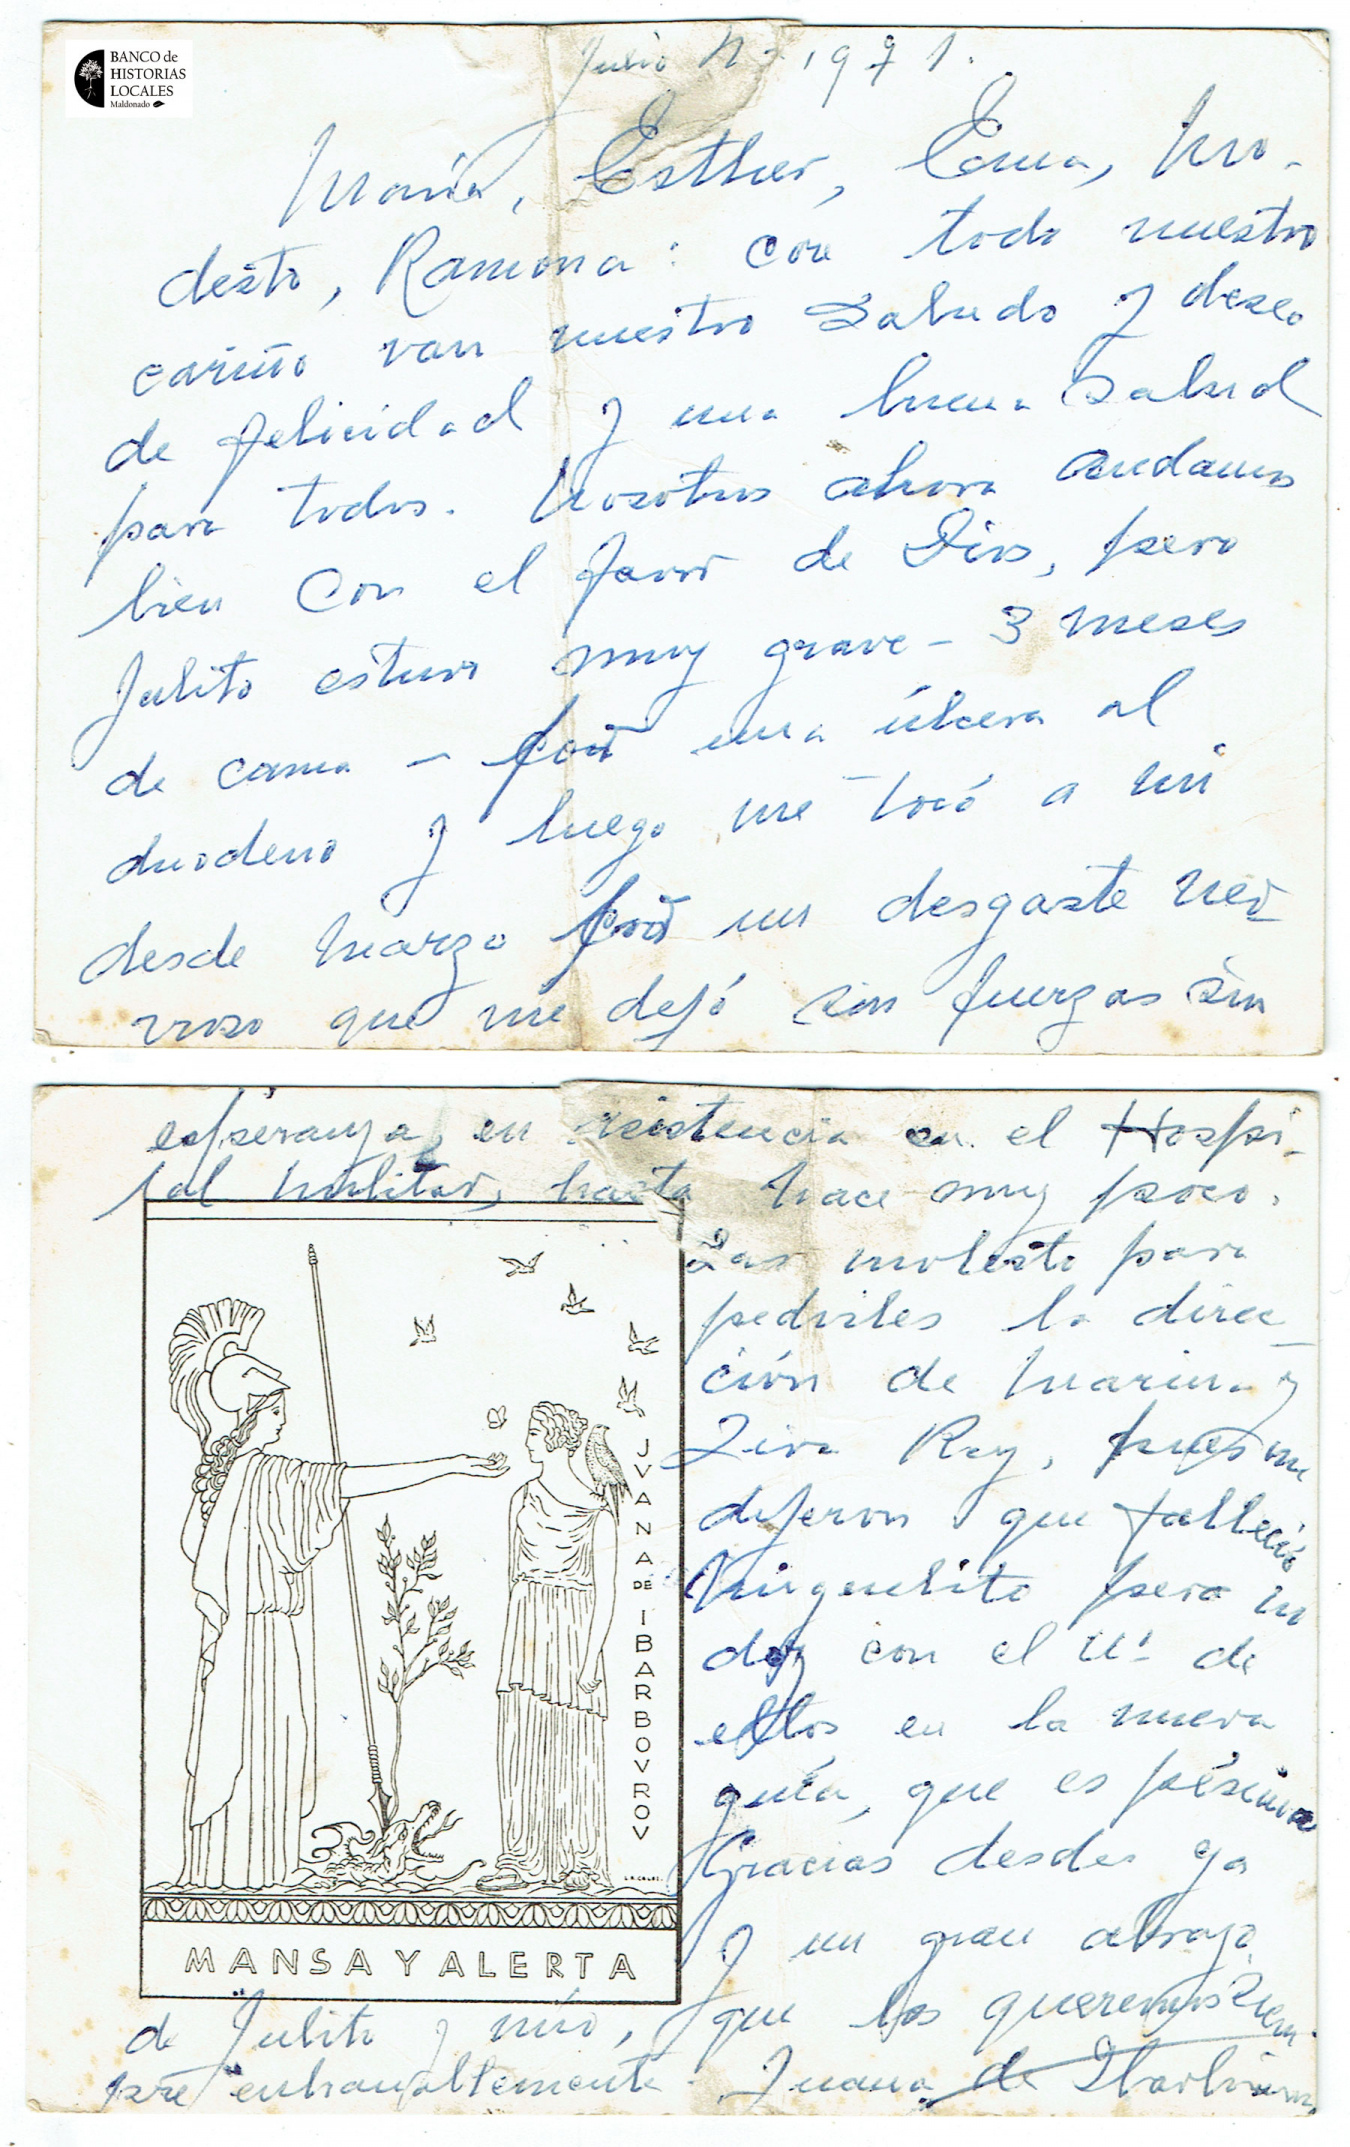 BANCO de
HISTORIAS
LOCALES
Maldonado
Julio 1971.
María, Esther, Ema, Mo-
desto, Ramona: con todo nuestro
cariño van nuestro saludo y deseo
de felicidad y una buena salud
para todos. Nosotros ahora andamos
bien con el favor de Dios, pero
Julito estuvo muy grave - 3 meses
de cama - por una úlcera al
duodeno y luego me tocó a mi
desde Marzo por un desgaste ner-
vioso que me dejó sin fuerzas sin
esperanza, en asistencia en el Hospi-
tal militar, hasta hace muy poco.
Las molesto para
pedirles la direc-
ción de Marina y
Rey, pues me
dijeron que falleció
Minguelito pero no
doy con el Nº de
ellos en la nueva
guía, que es pésima
Gracias desde ya
y un gran abrazo
de Julito y mío, que los queremos siem-
pre entrañablemente. Juana de Ibarbourou
JVANA DE IBARBOVROV
MANSA Y ALERTA